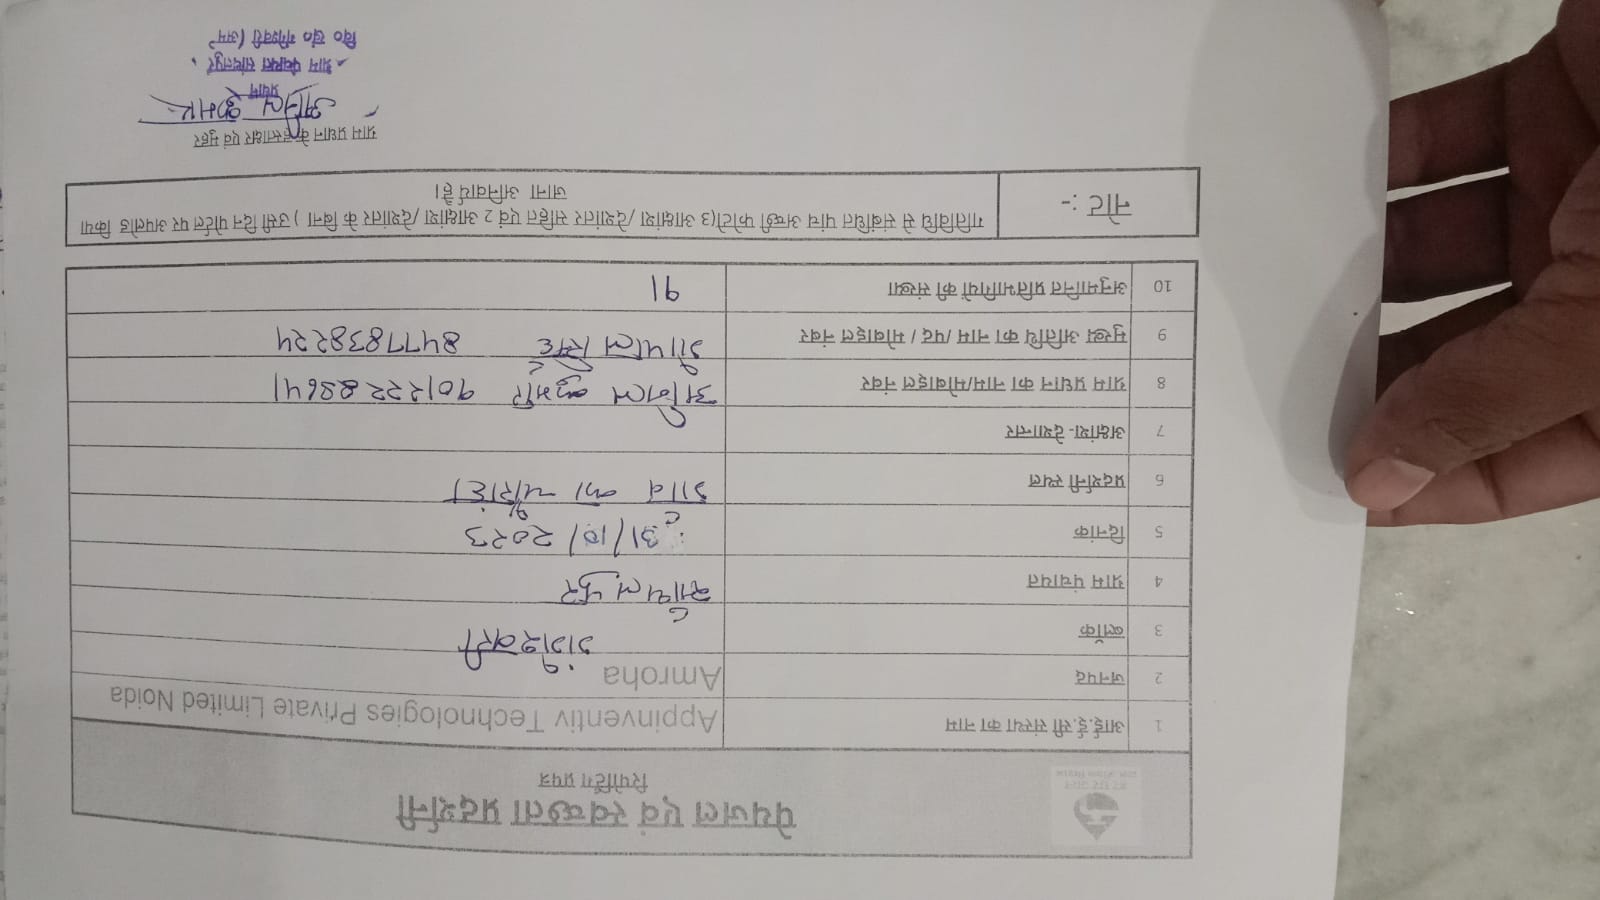 पेयजल एवं स्वच्छता प्रदर्शनी
रिपोर्टिंग प्रपत्र
1 आई.ई.सी संस्था का नाम Appinventiv Technologies Private Limited Noida
2 जनपद Amroha
3 ब्लॉक गंगेश्वरी
4 ग्राम पंचायत
5 दिनांक 31/10/2023
6 प्रदर्शनी स्थल गांव का चौराहा
7 अक्षांश- देशान्तर
8 ग्राम प्रधान का नाम/मोबाइल नंबर अनिल कुमार
9 मुख्य अतिथि का नाम /पद / मोबाइल नंबर गोपाल सिंह 8477838224
10 अनुमानित प्रतिभागियों की संख्या 91
नोट :- गतिविधि से संबंधित पांच अच्छी फोटो(3 आक्षांश /देशांतर सहित एवं 2 आक्षांश /देशांतर के बिना ) उसी दिन पोर्टल पर अपलोड किया
जाना अनिवार्य है।
ग्राम प्रधान के हस्ताक्षर एवं मुहर
अनिल कुमार
प्रधान
ग्राम पंचायत
वि० खं० गंगेश्वरी